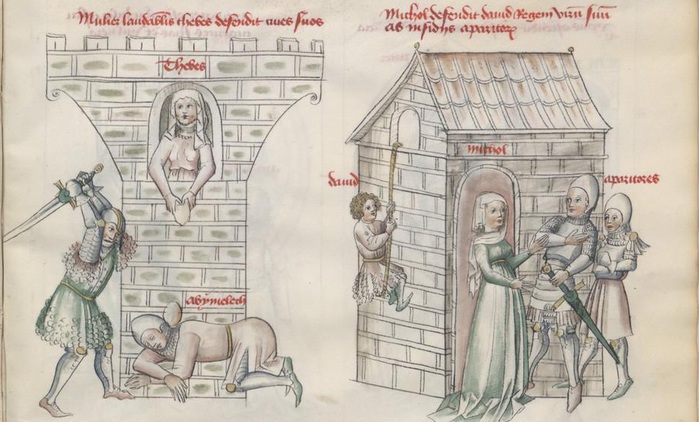 Mulier laudabilis thebes defendit cives suos
Thebes
abymelech
Michol defendit dauid Regem virū suū
ab insidijs aparitorꝝ
michol
dauid
aparitores